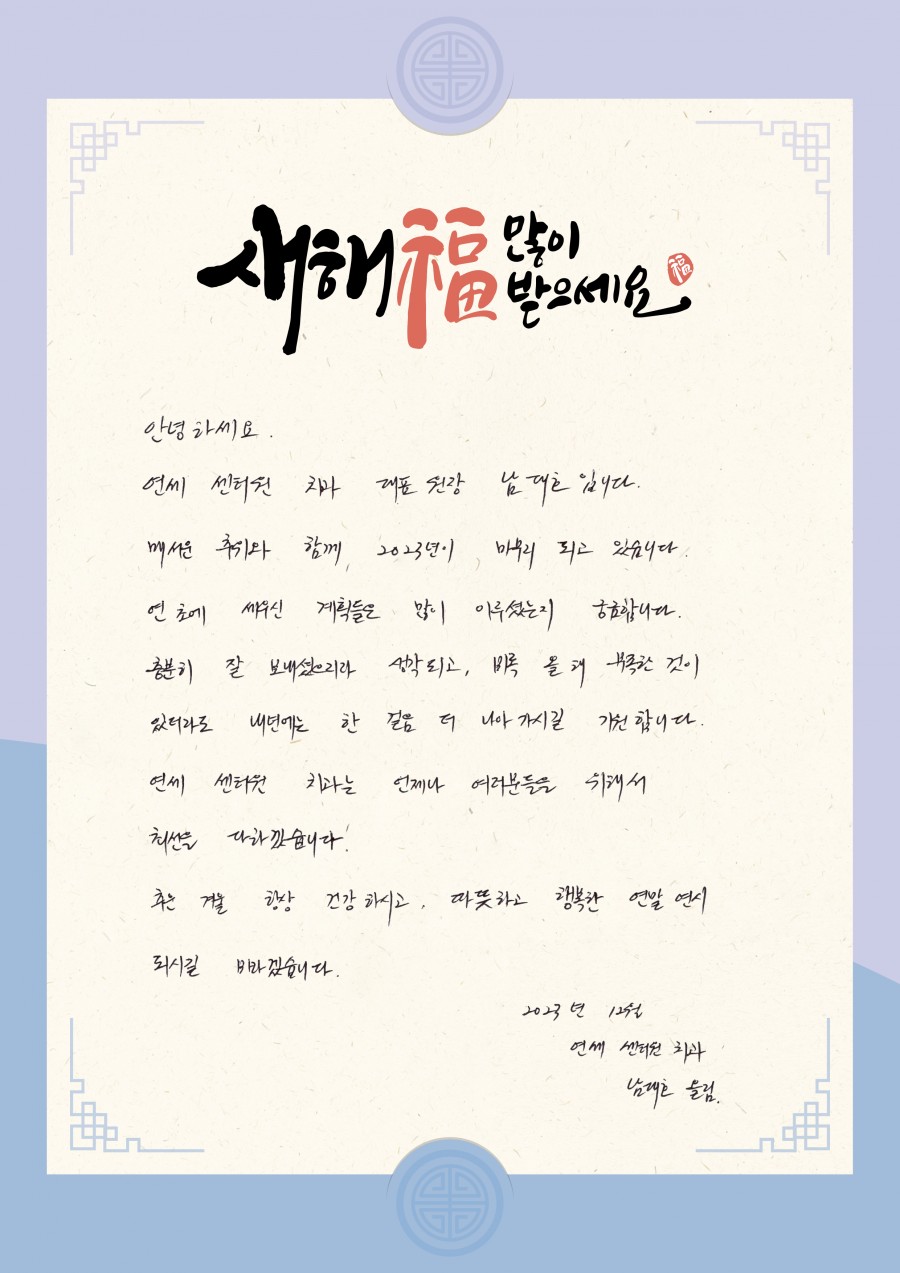 새해 福 많이 받으세요 福
안녕하세요.
연세 센터원 치과 대표 원장 남대호 입니다.
매서운 추위와 함께, 2023년이 마무리 되고 있습니다.
연 초에 세우신 계획들은 많이 이루셨는지 궁금합니다.
충분히 잘 보내셨으리라 생각되고, 비록 올 해 부족한 것이
있더라도 내년에는 한 걸음 더 나아가시길 기원합니다.
연세 센터원 치과는 언제나 여러분들을 위해서
최선을 다하겠습니다!
추운 겨울 항상 건강하시고, 따뜻하고 행복한 연말 연시
되시길 바라겠습니다.
2023년 12월
연세 센터원 치과
남대호 올림.